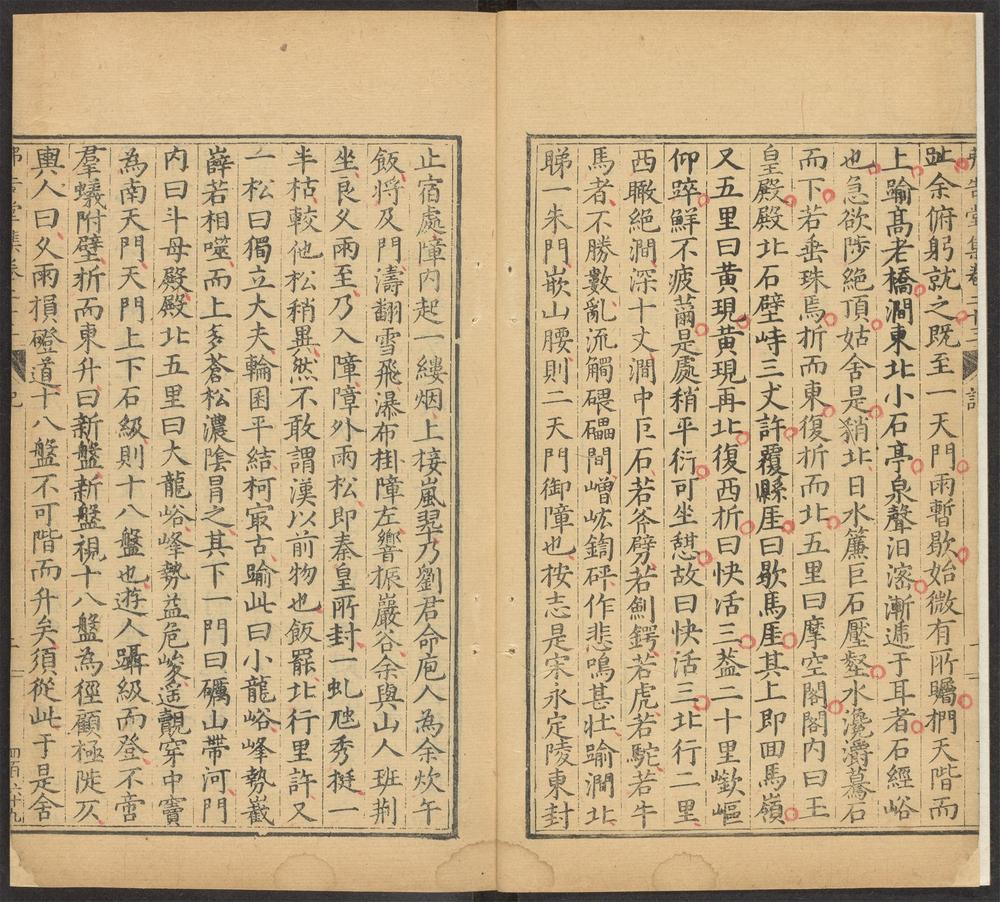 弗告堂集卷二十三 記
趾余俯躬就之既至一天門雨暫歇始微有所矚捫天階而
上踰高老橋澗東北小石亭泉聲汨㶁漸遞于耳者石經峪
也急欲陟絶頂姑舍是稍北日水簾巨石壓壑水瀺灂驀石
而下若垂珠焉折而東復折而北五里曰摩空閣閣內曰王
皇殿殿北石壁峙三丈許覆緜厓曰歇馬厓其上即回馬嶺
又五里曰黄現黄現再北復西折曰快活三葢二十里嶔嶇
仰踤鮮不疲薾是處稍平衍可坐憇故曰快活三北行二里
西瞰絶澗深十丈澗中巨石若斧劈若劍鍔若虎若駝若牛
馬者不勝數亂流觸碨礧間嶒峵鍧砰作悲鳴甚壯踰澗北
睇一朱門嵌山腰則二天門御障也按志是宋永定陵東封
止宿處障內起一縷烟上接嵐翠乃劉君命庖人為余炊午
飯將及門濤翻雪飛瀑布挂障左響振巖谷余與山人班荆
坐良久雨至乃入障障外兩松即秦皇所封一虬虺秀挺一
半枯較他松稍異然不敢謂漢以前物也飯罷北行里許又
一松曰獨立大夫輪囷平結柯㝡古踰此曰小龍峪峰勢巀
嶭若相噬而上多蒼松濃陰冐之其下一門曰礪山帶河門
內曰斗母殿殿北五里曰大龍峪峰勢益危峻遥覿穿中竇
為南天門天門上下石級則十八盤也遊人躡級而登不啻
羣蟻附壁折而東升曰新盤新盤視十八盤為徑顧極陡仄
輿人曰久雨損磴道十八盤不可階而升矣須從此于是舍
弗告堂集卷二十三 記 四百六十九